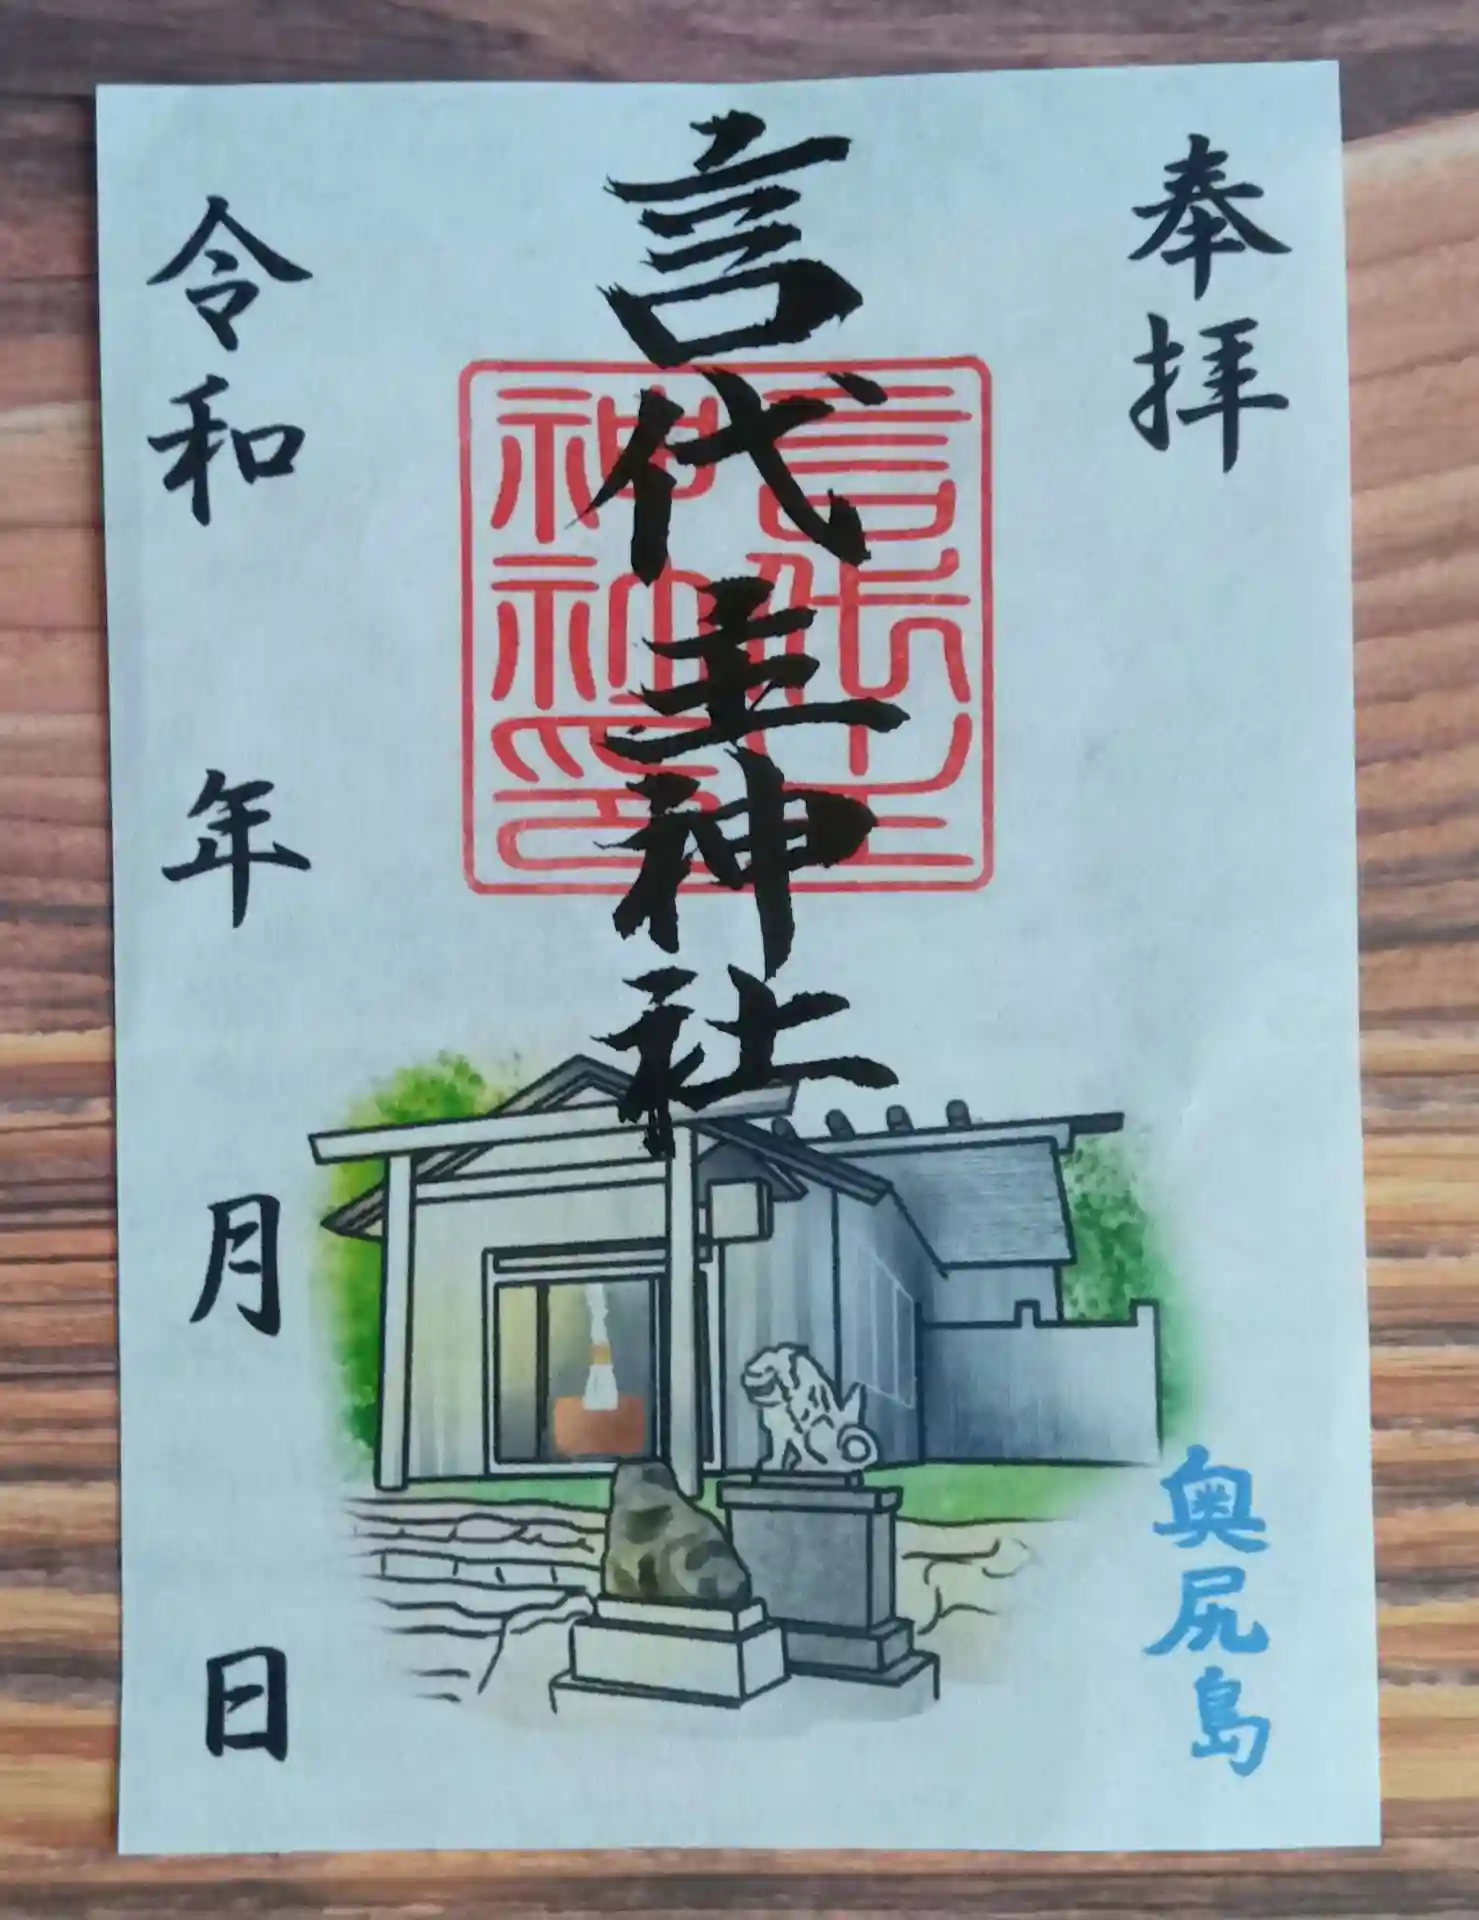 奉拝
奥尻島
言代主神社
言代主
神社印
令和 年 月 日